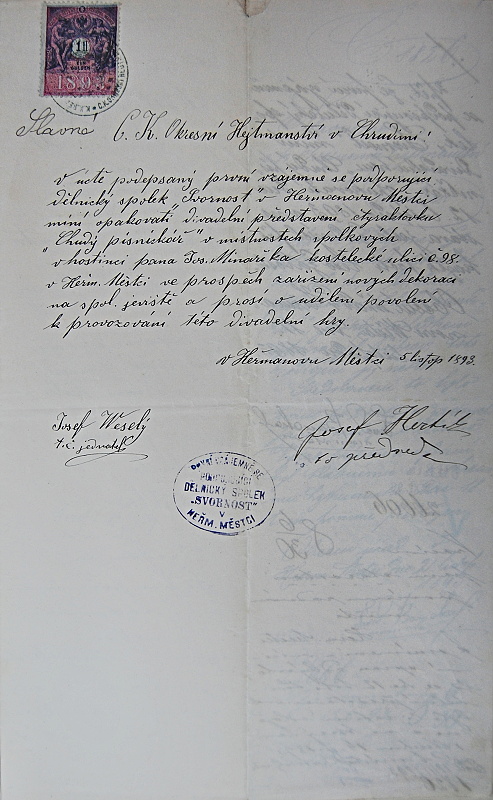 1893
Slavné C. K. Okresní Hejtmanství v Chrudimi!
v úctě podepsaný první vzájemně se podporující
dělnický spolek "Svornost" v Heřmanovu Městci
míní opakovati divadelní představení čtyraktovku
"Chudý písničkář" v místnostech spolkových
v hostinci pana Jos. Minaříka kostelecké ulici č. 98.
v Heřm. Městci ve prospěch zařízení nových dekorací
na spol. jeviště a prosí o udělení povolení
k provozování této divadelní hry.
v Heřmanovu Městci 5 listop 1893.
Josef Weselý
t. č. jednatel
Josef
předseda
PRVNÍ VZÁJEMNĚ SE
PODPORUJÍCÍ
DĚLNICKÝ SPOLEK
„SVORNOST"
V
HEŘM. MĚSTCI